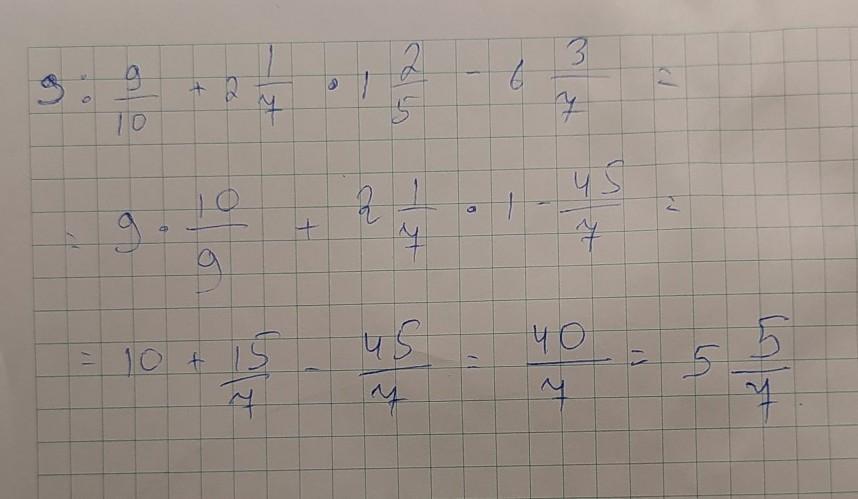 9 : 9/10 + 2 1/7 · 1 2/5 - 6 3/7 =
= 9 · 10/9 + 2 1/7 · 1 - 45/7 =
= 10 + 15/7 - 45/7 = 40/7 = 5 5/7